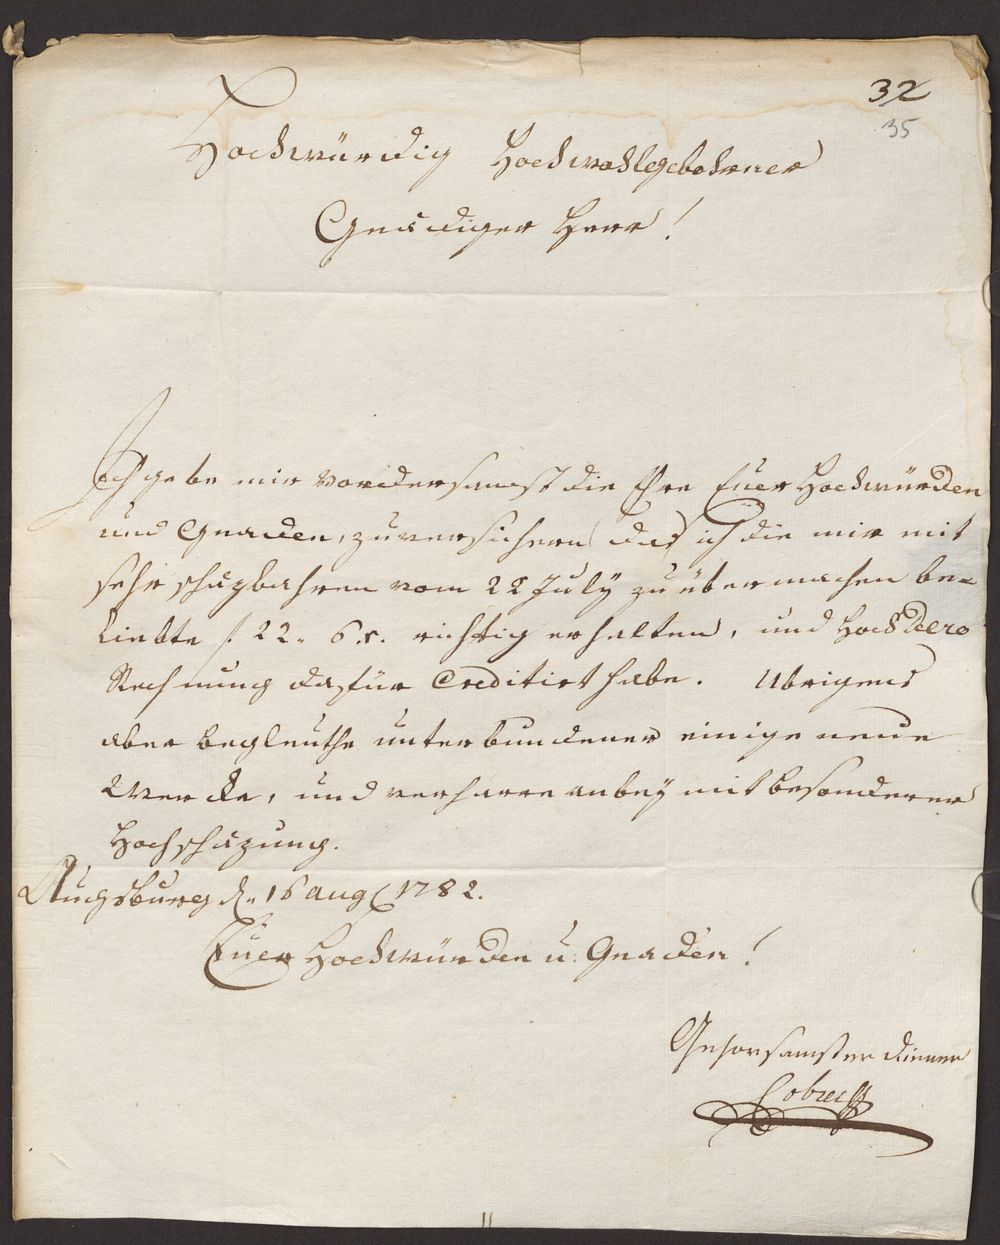 32
35
Hochwürdig Hochwohlgebohrner
Gnädiger Herr!
Ich gebe mir vordersamst die Ehre Euer Hochwürden
und Gnaden, zuversichern das ich die mir mit
sehr schäzbahren vom 22 July zu übermachen be-
liebte f. 22. 6 x. richtig erhalten, und HochDero
Rechnung dafür Creditirt habe. Ubrigens
aber begleuthe unterbundener einige neue
Wercke, und verharre anbey mit besonderer
Hochschäzung.
Augsburg d. 16 aug 1782.
Euer Hochwürden u: Gnaden!
Gehorsamster diener
Lotter